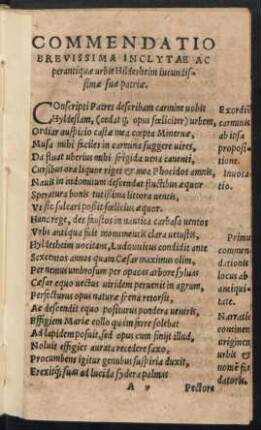 COMMENDATIO
BREVISSIMA INCLYTAE AC
perantiquæ urbis Hildesheim iucundis-
simæ suæ patriæ.
COnscripti Patres describam carmine uobis
Hyldesiam, (cedatq; opus fœliciter) urbem,
Ordiar auspicio castæ mea cœpta Mineruæ,
Musa mihi faciles in carmina suggere uires,
Da fluat uberius mihi frigida uena canenti,
Cursibus ora liquor riget & mea Phocidos amnis,
Nauis in indomitum descendat fluctibus æquor
Speratura bonis tutissima littora uentis,
Vt sic sulcari possit fœlicius æquor.
Hanc rege, des faustos in nautica carbasa uentos
Vrbs antiqua fuit monumentis clara uetustis,
Hyldesheim uocitant, Ludouuicus condidit ante
Sexcentos annos quam Cæsar maximus olim,
Per nemus umbrosum per opacas arbore syluas
Cæsar equo uectus uiridem peruenit in agrum,
Perfecturus opus naturæ frena retorsit,
Ac descendit equo positurus pondera uentris,
Effigiem Mariæ collo quàm ferre solebat
Ad lapidem posuit, sed opus cum finijt illud,
Noluit effigies aurata recedere saxo,
Procumbens igitur genubus suspiria duxit,
Erexitq; suas ad lucida sydera palmas
A v
Pectore
Exordiũ
carminis
ab ipsa
proposi-
tione.
Inuoca-
tio.
Primus
commen-
dationis
locus ab
antiqui-
tate.
Narratio
continens
originem
urbis &
nomē fũ-
datoris.